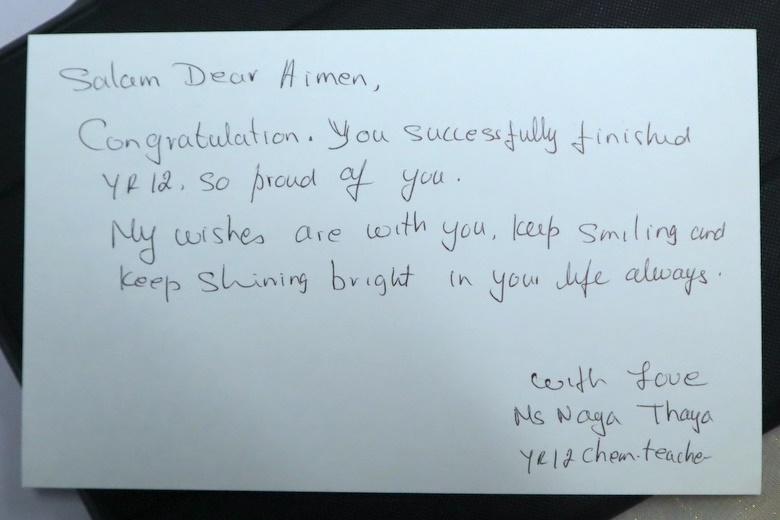 Salam Dear Aimen,
Congratulation. You successfully finished
YR 12. So proud of you.
My wishes are with you, keep smiling and
keep shining bright in your life always.
with Love
Ms Naga Thaya
YR12 Chem.teacher